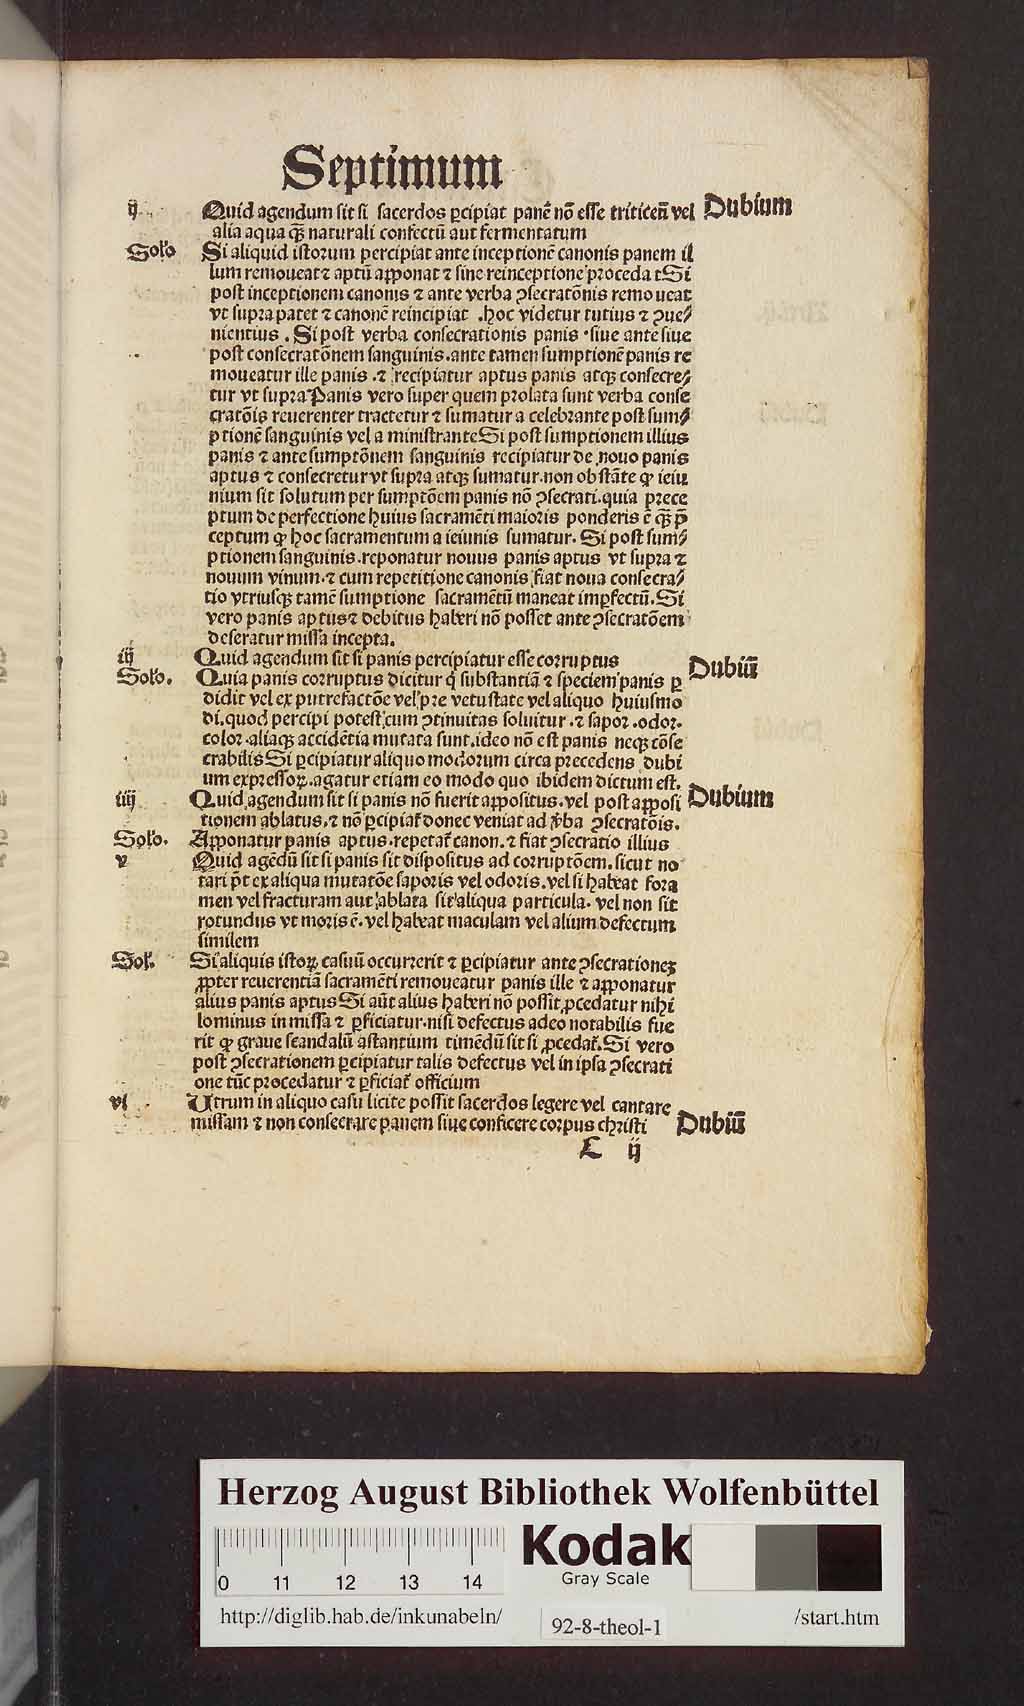 Septimum
ij Quid agendum sit si sacerdos ꝑcipiat panē nō esse triticeū vel Dubium
alia aqua qꝫ naturali confectū aut fermentatum
Solo Si aliquid istorum percipiat ante inceptionē canonis panem il
lum remoueat ⁊ aptū apponat ⁊ sine reinceptione proceda t Si
post inceptionem canonis ⁊ ante verba ꝯsecratōnis remoueat
vt supra patet ⁊ canonē reincipiat .hoc videtur tutius ⁊ ꝯue⸗
nientius . Si post verba consecrationis panis .siue ante siue
post consecratōnem sanguinis.ante tamen sumptionē panis re
moueatur ille panis .⁊ recipiatur aptus panis atqꝫ consecre⸗
tur vt supra Panis vero super quem prolata sunt verba conse
cratōis reuerenter tractetur ⁊ sumatur a celebrante post sum⸗
ptionē sanguinis vel a ministrante Si post sumptionem illius
panis ⁊ ante sumptōnem sanguinis recipiatur de nouo panis
aptus ⁊ consecretur vt supra atqꝫ sumatur.non obstāte ꝙ ieiu
nium sit solutum per sumptōem panis nō ꝯsecrati.quia prece
ptum de perfectione huius sacramēti maioris ponderis ē qꝫ p̄
ceptum ꝙ hoc sacramentum a ieiunis sumatur. Si post sum⸗
ptionem sanguinis.reponatur nouus panis aptus vt supra ⁊
nouum vinum.⁊ cum repetitione canonis fiat noua consecra⸗
tio vtriusqꝫ tamē sumptione sacramētū maneat imꝑfectū.Si
vero panis aptus⁊ debitus haberi nō posset ante ꝯsecratōem
deseratur missa incepta.
iij Quid agendum sit si panis percipiatur esse corruptus Dubiū
Solo. Quia panis corruptus dicitur q̄ substantiā ⁊ speciem panis ꝑ
didit vel ex putrefactōe vel pre vetustate vel aliquo huiusmo
di.quod percipi potest cum ꝯtinuitas soluitur .⁊ sapor .odor.
color .aliaqꝫ accidētia mutata sunt.ideo nō est panis neqꝫ cōse
crabilis Si ꝑcipiatur aliquo modorum circa precedens dubi
um expressoꝝ.agatur etiam eo modo quo ibidem dictum est.
iiij Quid agendum sit si panis nō fuerit appositus.vel post apposi Dubium
tionem ablatus.⁊ nō ꝑcipiat̄ donec veniat ad v̄ba ꝯsecratōis.
Solo. Apponatur panis aptus.repetat̄ canon.⁊ fiat ꝯsecratio illius
v Quid agēdū sit si panis sit dispositus ad corruptōem.sicut no
tari pōt ex aliqua mutatōe saporis vel odoris.vel si habeat fora
men vel fracturam aut ablata sit aliqua particula. vel non sit
rotundus vt moris ē.vel habeat maculam vel alium defectum
similem
Sol. Si aliquis istoꝝ casuū occurrerit ⁊ ꝑcipiatur ante ꝯsecrationeꝫ
ꝓpter reuerentiā sacramēti remoueatur panis ille ⁊ apponatur
alius panis aptus Si aūt alius haberi nō possit ꝓcedatur nihi
lominus in missa ⁊ ꝑficiatur.nisi defectus adeo notabilis fue
rit ꝙ graue scandalū astantium timēdū sit si ꝓcedat̄.Si vero
post ꝯsecrationem ꝑcipiatur talis defectus vel in ipsa ꝯsecrati
one tūc procedatur ⁊ ꝑficiat̄ officium
vi Utrum in aliquo casu licite possit sacerdos legere vel cantare
missam ⁊ non consecrare panem siue conficere corpus christi Dubiū
L ij
Herzog August Bibliothek Wolfenbüttel
0 11 12 13 14
Kodak
Gray Scale
http://diglib.hab.de/inkunabeln/
92-8-theol-1
/start.htm